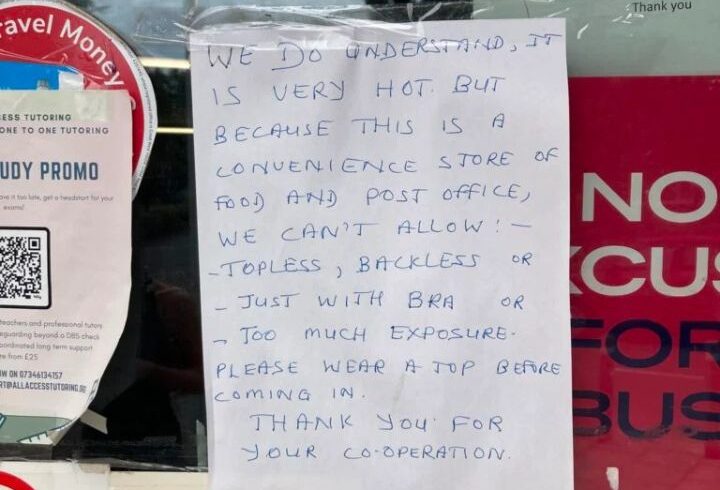 Thank you
Travel Money
ESS TUTORING
ONE TO ONE TUTORING
UDY PROMO
ave it too late, get a headstart for your
exams!
teachers and professional tutors
eguarding beyond a DBS check
oordinated long term support
re from £25
OW ON 07346134157
RT@ALLACCESSTUTORING.
WE DO UNDERSTAND, IT
IS VERY HOT. BUT
BECAUSE THIS IS A
CONVENIENCE STORE OF
FOOD AND POST OFFICE,
WE CAN'T ALLOW :-
- TOPLESS, BACKLESS OR
- JUST WITH BRA OR
- TOO MUCH EXPOSURE.
PLEASE WEAR A TOP BEFORE
COMING IN.
THANK YOU FOR
YOUR CO-OPERATION.
NO
XCUS
FOR
BUS